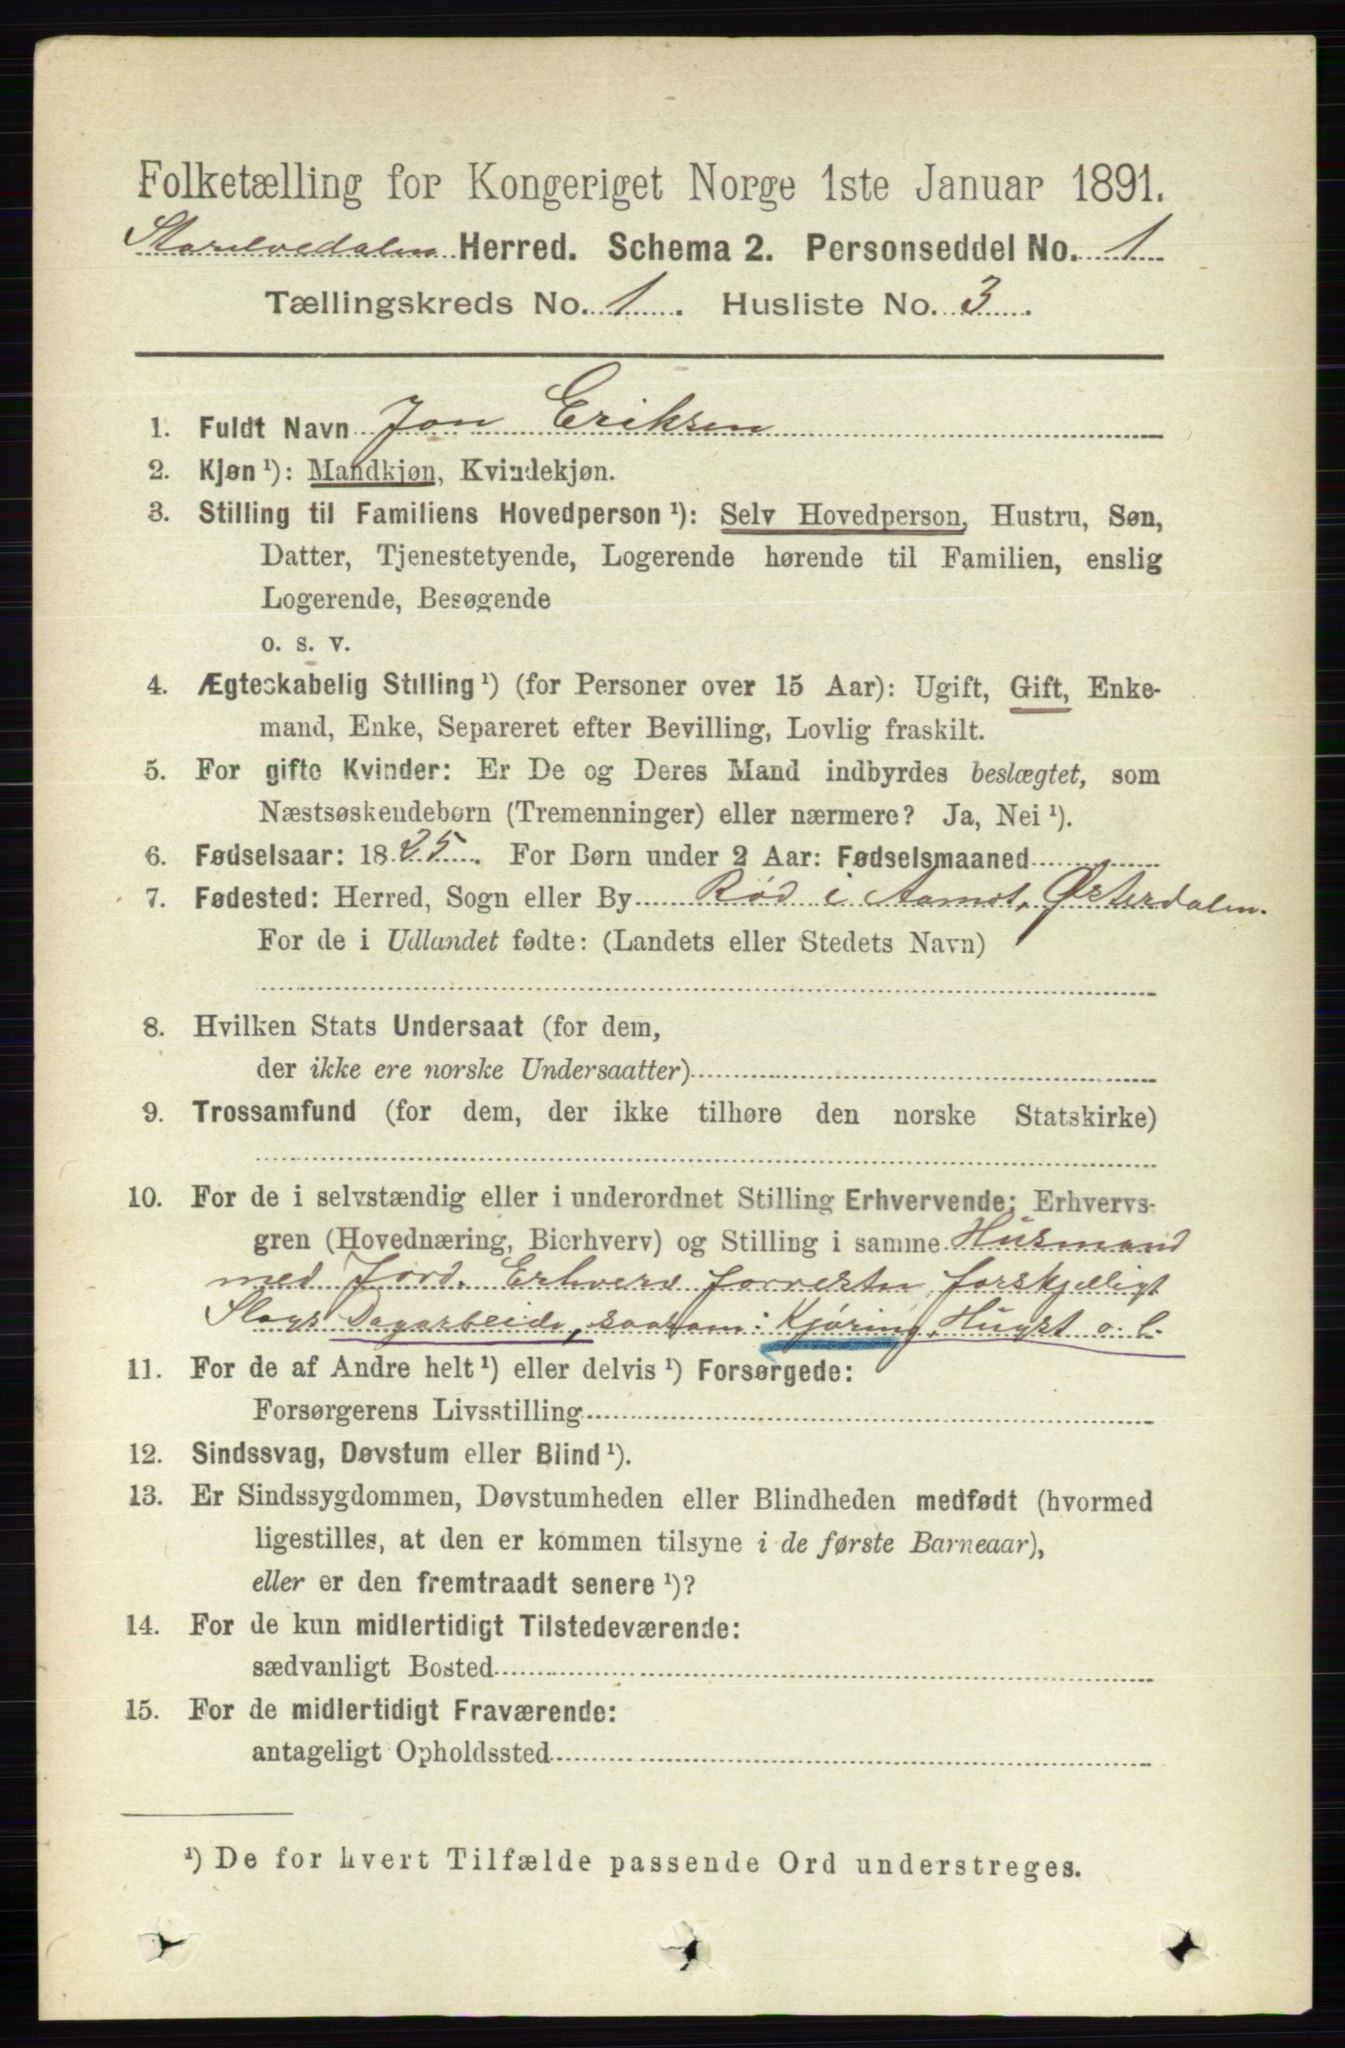 Folketælling for Kongeriget Norge 1ste Januar 1891.
Storelvedalen Herred. Schema 2. Personseddel No. 1
Tællingskreds No. 1. Husliste No. 3.
1. Fuldt Navn Jon Eriksen
2. Kjøn ¹): Mandkjøn, Kvindekjøn.
3. Stilling til Familiens Hovedperson ¹): Selv Hovedperson, Hustru, Søn,
Datter, Tjenestetyende, Logerende hørende til Familien, enslig
Logerende, Besøgende
o. s. v.
4. Ægteskabelig Stilling ¹) (for Personer over 15 Aar): Ugift, Gift, Enke-
mand, Enke, Separeret efter Bevilling, Lovlig fraskilt.
5. For gifte Kvinder: Er De og Deres Mand indbyrdes beslægtet, som
Næstsøskendebørn (Tremenninger) eller nærmere? Ja, Nei ¹).
6. Fødselsaar: 1825. For Børn under 2 Aar: Fødselsmaaned
7. Fødested: Herred, Sogn eller By Rød i Aamot, Østerdalen.
For de i Udlandet fødte: (Landets eller Stedets Navn)
8. Hvilken Stats Undersaat (for dem,
der ikke ere norske Undersaatter)
9. Trossamfund (for dem, der ikke tilhøre den norske Statskirke)
10. For de i selvstændig eller i underordnet Stilling Erhvervende: Erhvervs-
gren (Hovednæring, Bierhverv) og Stilling i samme Husmand
med Jord. Erhverv forresten forskjelligt
Slags Dagarbeide, saasom: Kjøring, Hugst o. l.
11. For de af Andre helt ¹) eller delvis ¹) Forsørgede:
Forsørgerens Livsstilling
12. Sindssvag, Døvstum eller Blind ¹).
13. Er Sindssygdommen, Døvstumheden eller Blindheden medfødt (hvormed
ligestilles, at den er kommen tilsyne i de første Barneaar),
eller er den fremtraadt senere ¹)?
14. For de kun midlertidigt Tilstedeværende:
sædvanligt Bosted
15. For de midlertidigt Fraværende:
antageligt Opholdssted
¹) De for hvert Tilfælde passende Ord understreges.